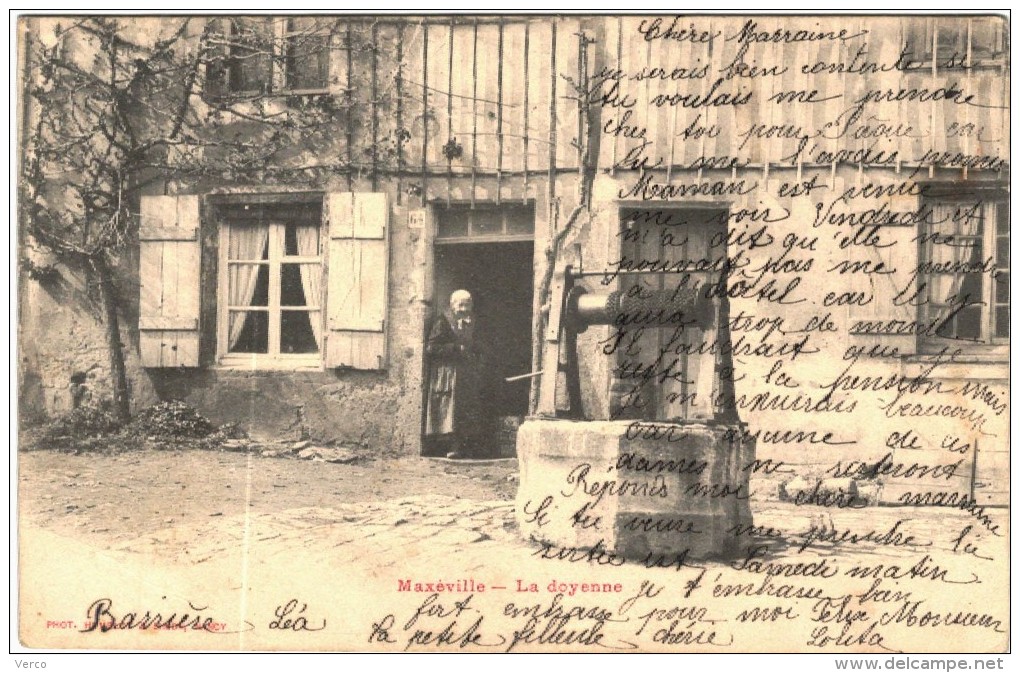 Chère Marraine
je serais bien contente si
tu voulais me prendre
chez toi pour Pâque car
tu me l'avais promis
Maman est venue
me voir Vendredi et
m'a dit qu'elle ne
pouvait pas me prendre
à l'hôtel car il y
aura trop de monde
Il faudrait que je
reste à la pension mais
je m'ennuirais beaucoup
car aucune de ces
dames ne resteront
Réponds moi chère marraine
Si tu veux me prendre la
sortie est Samedi matin
je t'embrasse bien
fort embrasse pour moi Monsieur
la petite filleule chérie Lolita
64
Maxéville — La doyenne
PHOT.
Barrière Léa
Verco
www.delcampe.net